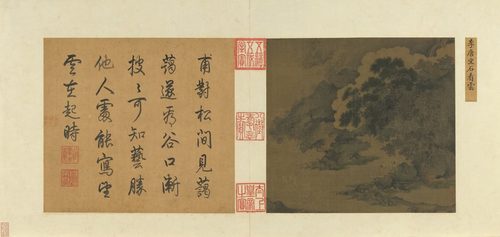 李唐坐石看雲
甫對松間見藹
藹遽看谷口漸
披〻可知藝勝
他人處能寫
雲生起時